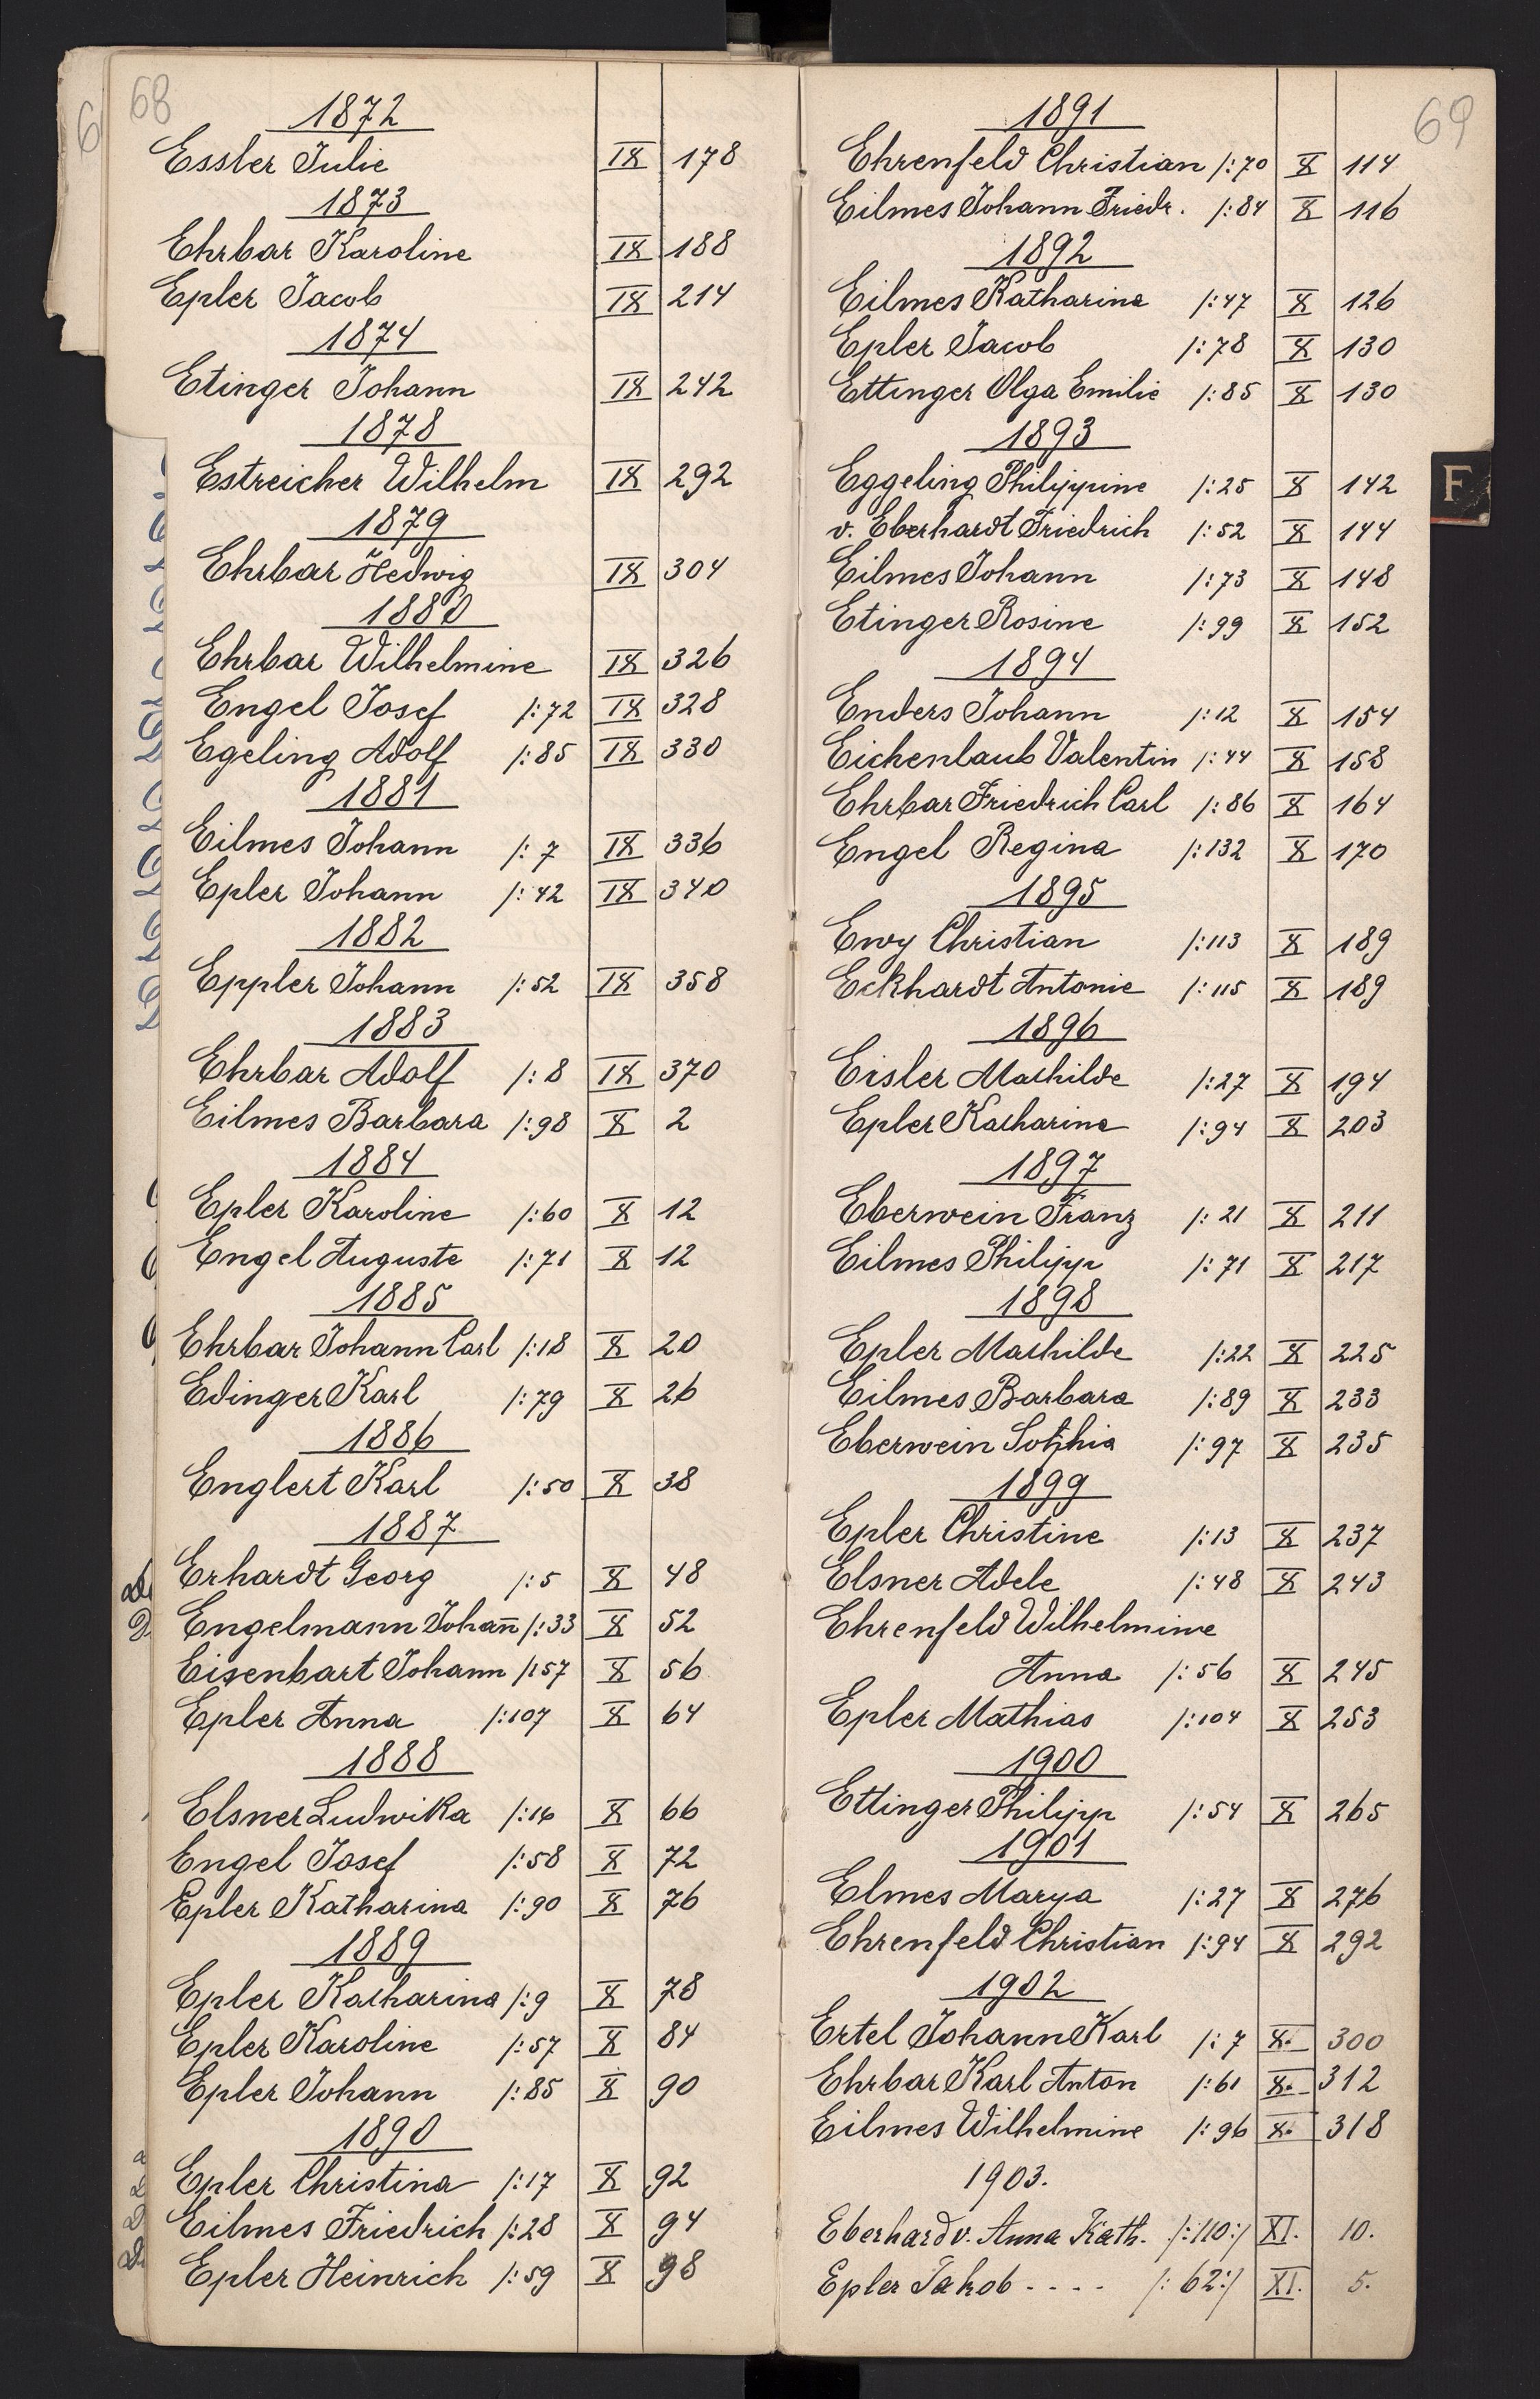 68
1872
Essler Julie IX 178
1873
Ehrbar Karoline IX 188
Epler Jacob IX 214
1874
Etinger Johann IX 242
1878
Estreicher Wilhelm IX 292
1879
Ehrbar Hedwig IX 304
1880
Ehrbar Wilhelmine IX 326
Engel Josef /:72 IX 328
Egeling Adolf /:85 IX 330
1881
Eilmes Johann /:7 IX 336
Epler Johann /:42 IX 340
1882
Eppler Johann /:52 IX 358
1883
Ehrbar Adolf /:8 IX 370
Eilmes Barbara /:98 X 2
1884
Epler Karoline /:60 X 12
Engel Auguste /:71 X 12
1885
Ehrbar Johann Carl /:18 X 20
Edinger Karl /:79 X 26
1886
Englert Karl /:50 X 38
1887
Erhardt Georg /:5 X 48
Engelmann Johan̅ /:33 X 52
Eisenbart Johann /:57 X 56
Epler Anna /:107 X 64
1888
Elsner Ludwika /:16 X 66
Engel Josef /:58 X 72
Epler Katharina /:90 X 76
1889
Epler Katharina /:9 X 78
Epler Karoline /:57 X 84
Epler Johann /:85 X 90
1890
Epler Christina /:17 X 92
Eilmes Friedrich /:28 X 94
Epler Heinrich /:59 X 98
69
1891
Ehrenfeld Christian /:70 X 114
Eilmes Johann Friedr. /:84 X 116
1892
Eilmes Katharina /:47 X 126
Epler Jacob /:78 X 130
Ettinger Olga Emilie /:85 X 130
1893
Eggeling Philippine /:25 X 142
v. Eberhardt Friedrich /:52 X 144
Eilmes Johann /:73 X 148
Etinger Rosine /:99 X 152
1894
Enders Johann /:12 X 154
Eichenlaub Valentin /:44 X 158
Ehrbar Friedrich Carl /:86 X 164
Engel Regina /:132 X 170
1895
Ewy Christian /:113 X 189
Eckhardt Antonie /:115 X 189
1896
Eisler Mathilde /:27 X 194
Epler Katharina /:94 X 203
1897
Eberwein Franz /:21 X 211
Eilmes Philipp /:71 X 217
1898
Epler Mathilde /:22 X 225
Eilmes Barbara /:89 X 233
Eberwein Sophia /:97 X 235
1899
Epler Christine /:13 X 237
Elsner Adele /:48 X 243
Ehrenfeld Wilhelmine
Anna /:56 X 245
Epler Mathias /:104 X 253
1900
Ettinger Philipp /:54 X 265
1901
Elmes Marya /:27 X 276
Ehrenfeld Christian /:94 X 292
1902
Ertel Johann Karl /:7 X. 300
Ehrbar Karl Anton /:61 X. 312
Eilmes Wilhelmine /:96 X. 318
1903.
Eberhard v. Anna Kath. /:110:/ XI. 10.
Epler Jakob - - - - /:62:/ XI. 5.
F